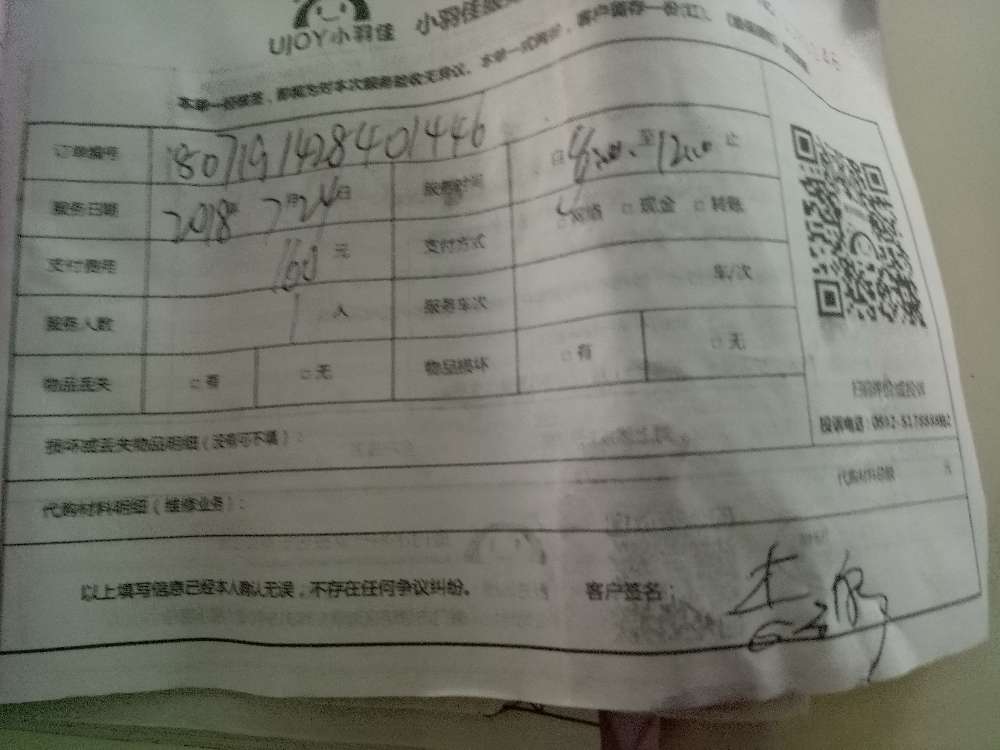 UJOY小羽佳 小羽佳
本单一经签签,即视为对本次服务验收无异议。本单一式两份,客户留存一份(红)。
订单编号 180719142840 1446
服务时间 自 8:00 至 1200 止
服务日期 2018年 7月24日
支付费用 160 元 支付方式 □网络 □现金 □转账
服务人数 1 人 服务车次 车/次
物品丢失 □有 □无 物品损坏 □有 □无
扫码评价或投诉
投诉电话:0592-5178
损坏或丢失物品明细(没有可不填):
代购材料明细(维修业务): 代购材料总额 元
以上填写信息已经本人确认无误,不存在任何争议纠纷。 客户签名: